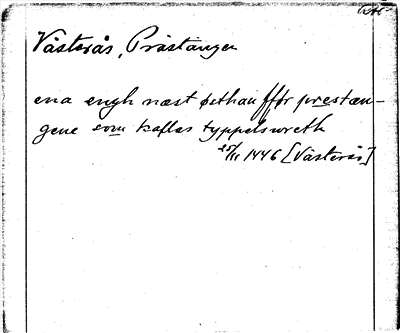 Västerås, Prästängen
ena engh næst østhan ffør prestæn-
gene som kallas typpelswreth
25/11 1446 [Västerås]